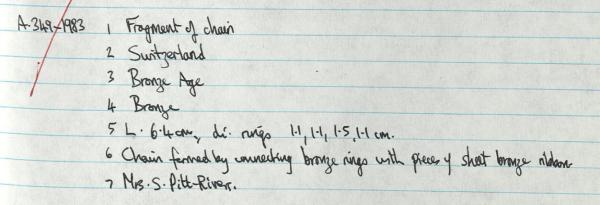 A.349-1983 1 Fragment of chain
2 Switzerland
3 Bronze Age
4 Bronze
5 L. 6.4cm, di. rings 1.1, 1.1, 1.5, 1.1 cm.
6 Chain formed by connecting bronze rings with pieces of sheet bronze ribbon
7 Mrs. S. Pitt-Rivers.